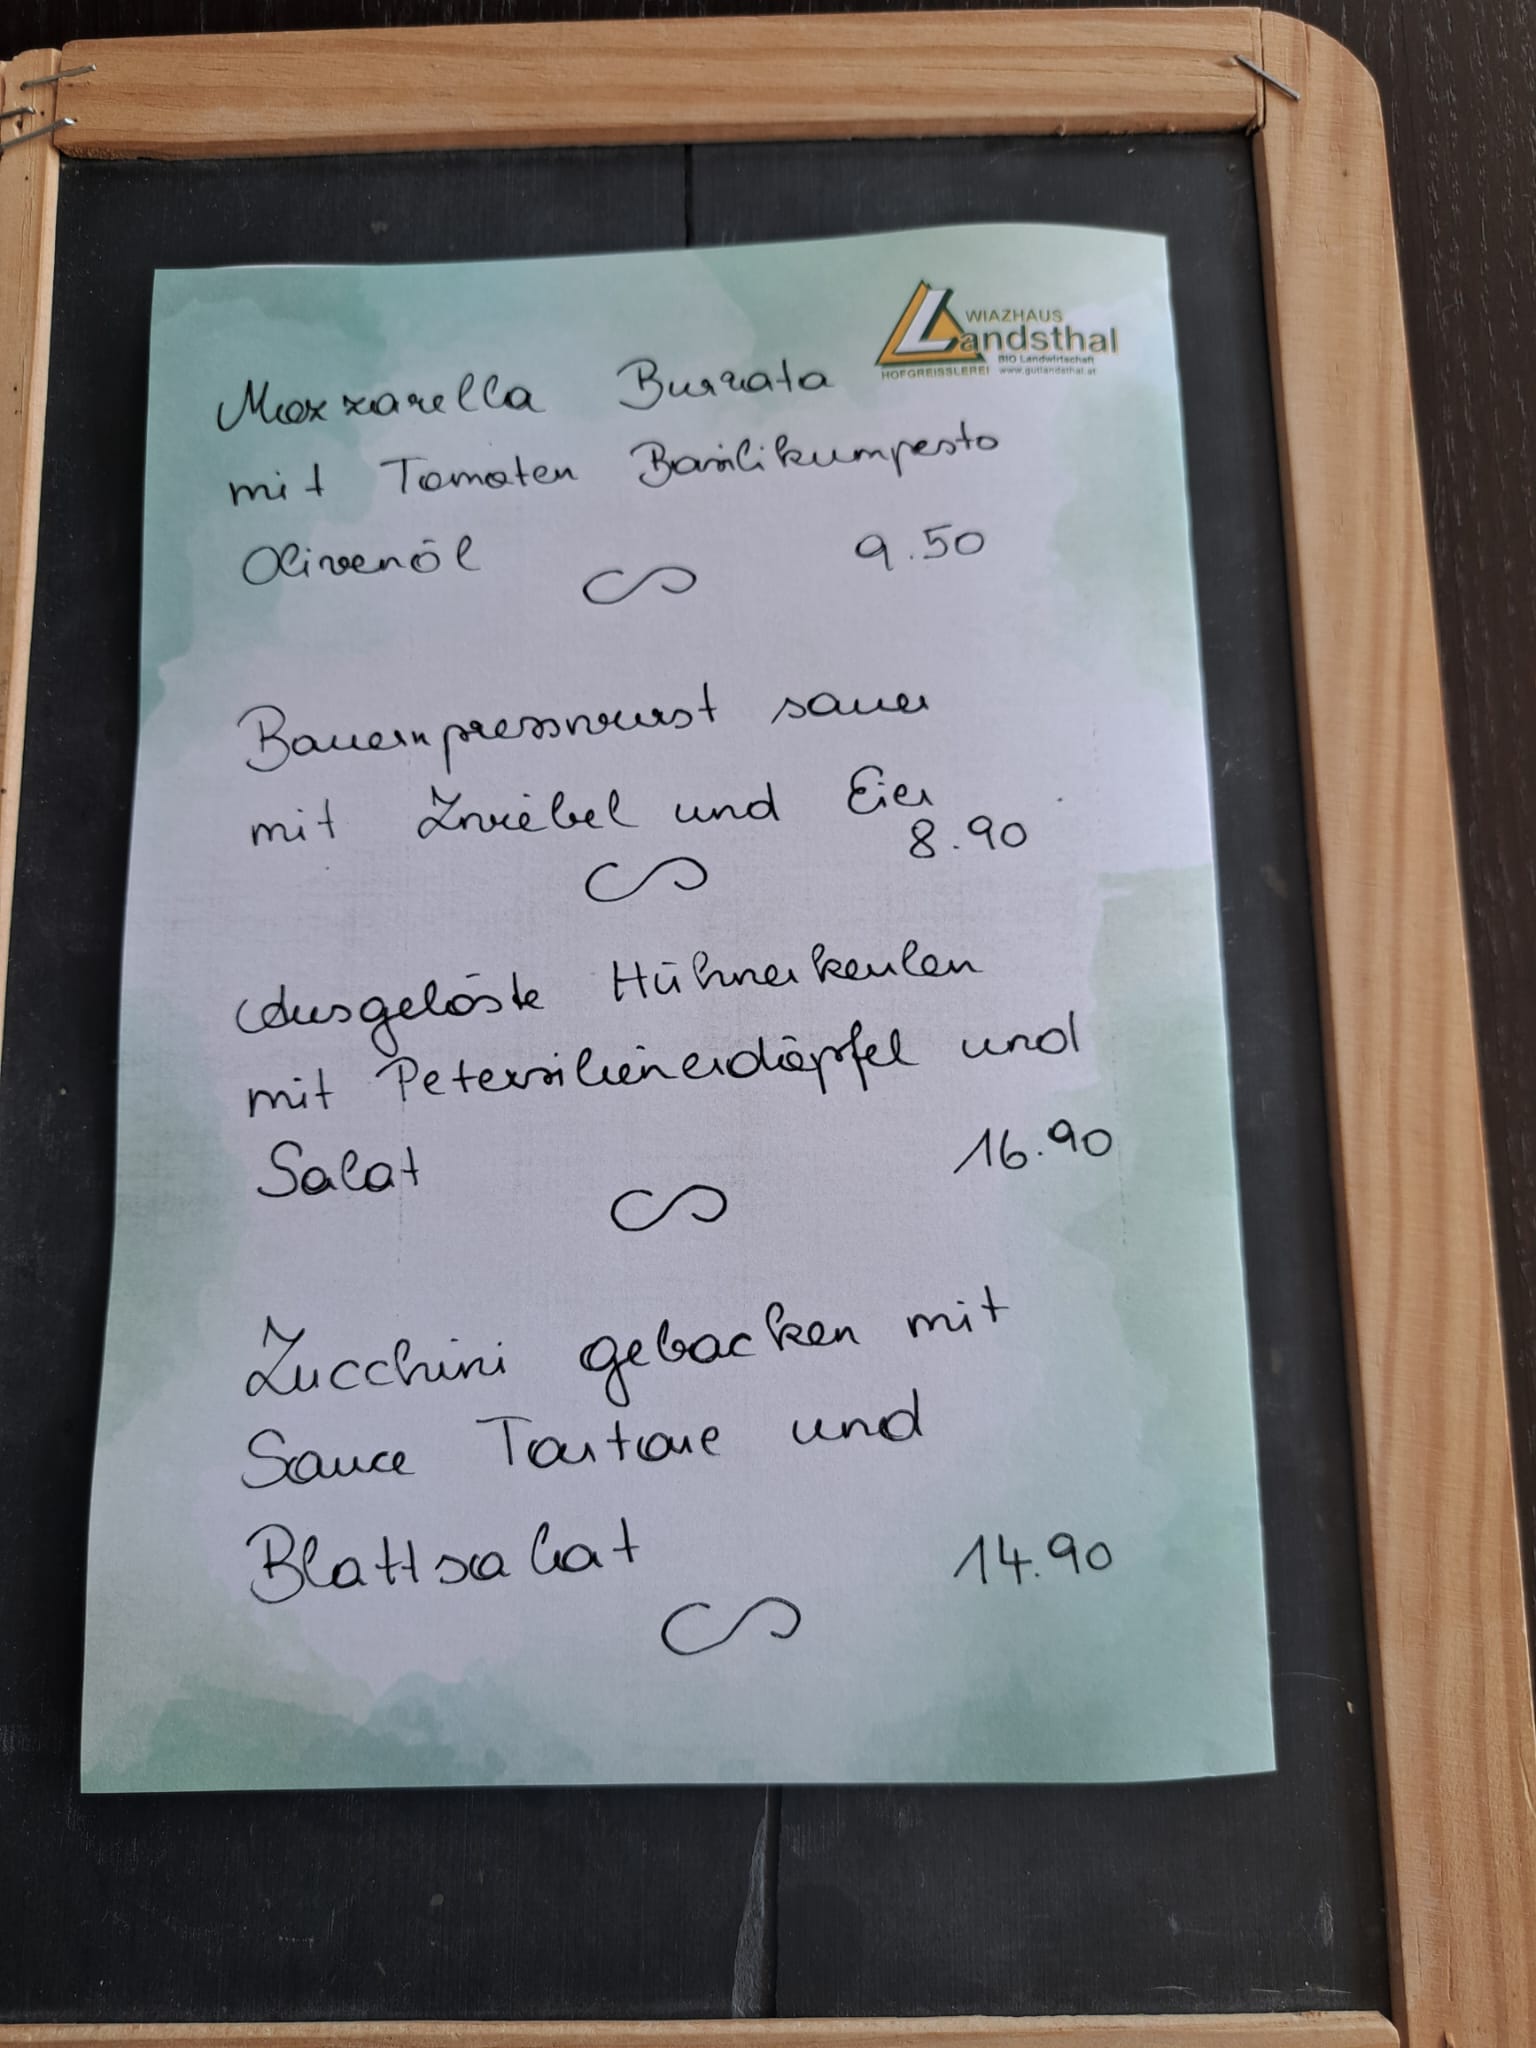 WIAZHAUS
Landsthal
BIO Landwirtschaft
HOFGREISSLEREI www.gutlandsthal.at
Mozzarella Burrata
mit Tomaten Basilikumpesto
Olivenöl 9.50
Bauernpresswurst sauer
mit Zwiebel und Eier
8.90
Ausgelöste Hühnerkeulen
mit Petersilienerdäpfel und
Salat 16.90
Zucchini gebacken mit
Sauce Tartare und
Blattsalat 14.90